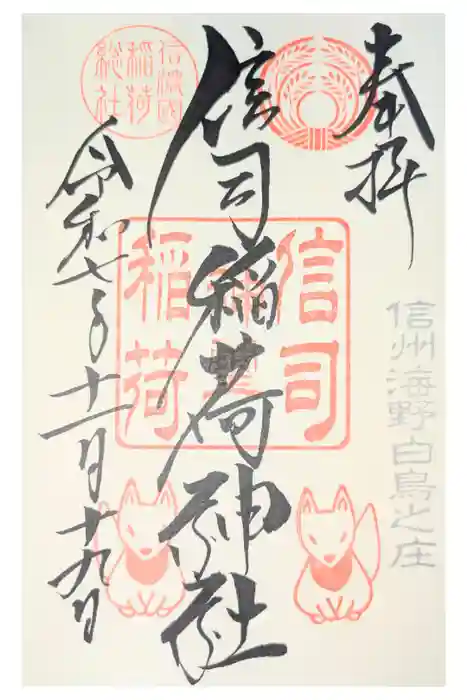 奉拝
信州海野白鳥之庄
信司稲荷神社
信司
稲荷
信濃國
稲荷
総社
令和七年十一月十九日